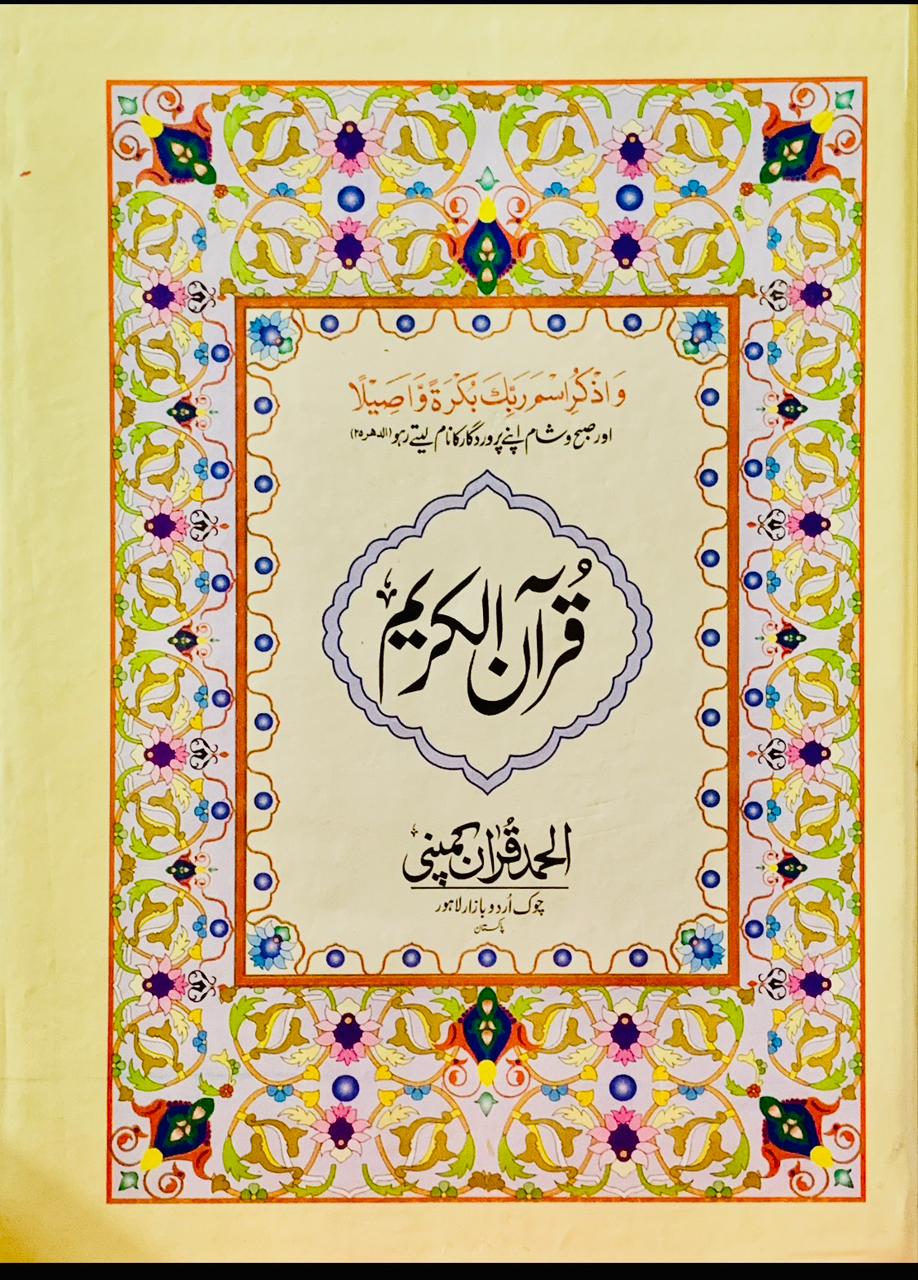 وَاذْكُرِ اسْمَ رَبِّكَ بُكْرَةً وَّاَصِيْلًا
اور صبح و شام اپنے پروردگار کا نام لیتے رہو (الدھر ۲۵)
قُرآن الکریم
الحمد قُرآن کمپنی
چوک اُردو بازار لاہور
پاکستان